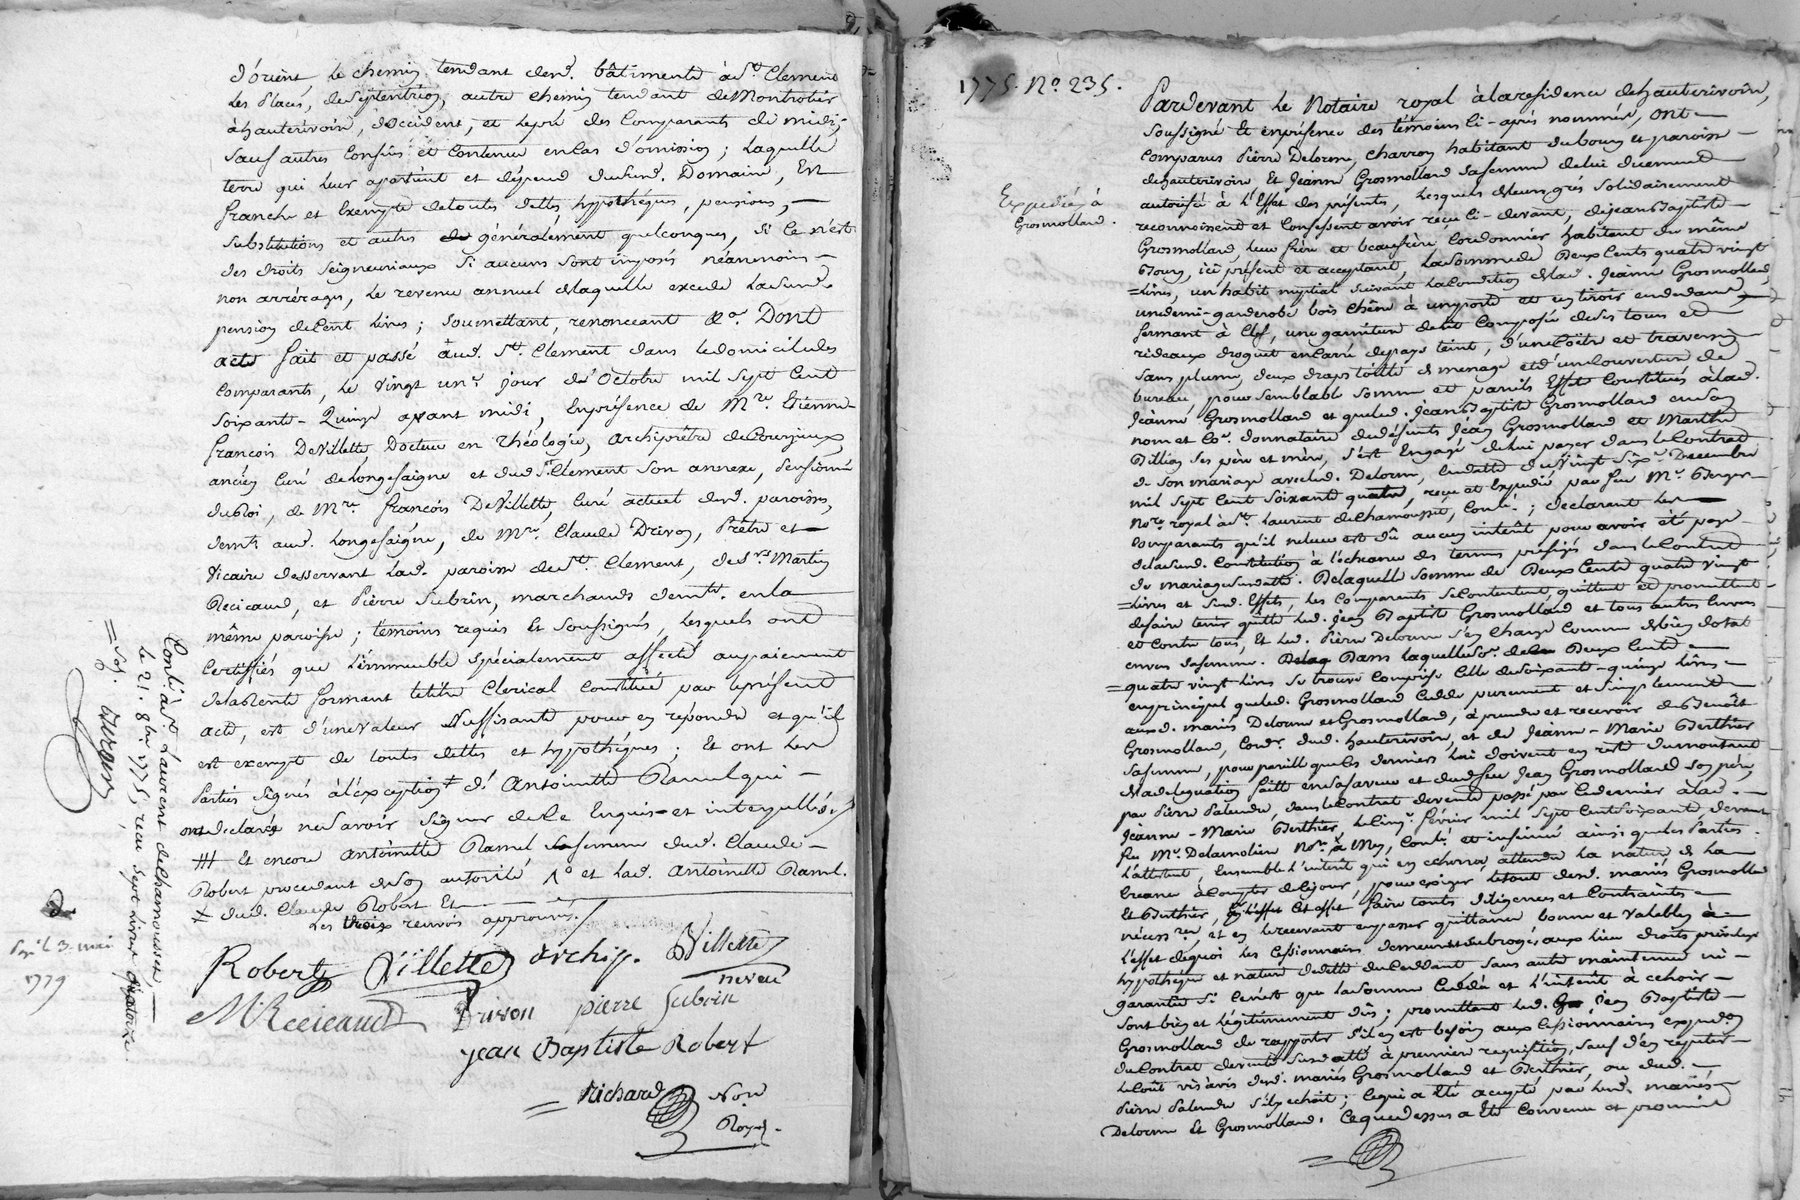 d'orient, le chemin tendant desd. bâtiments à St. Clement
les Places, de septentrion, autre chemin tendant de Montrotier
à hauterivoire, d'occident, et le pré des Comparants de midi;
sauf autres Confins et Contenue en Cas d'omission; laquelle
terre qui leur apartient et dépend dudit. Domaine, est
franche et Exempte de toutes dettes hypothéques, pensions, —
substitutions et autres généralement quelconques, si ce n'est
des droits seigneuriaux si aucuns sont imposés néanmoins —
non arréragés, le revenu annuel de laquelle excede la susd.
pension de Cent livres; soumettant, renonceant &a. Dont
acte fait et passé aud. St. Clement dans le domicile des
comparants, le vingt un. jour d'Octobre mil sept Cent
soixante-Quinze avant midi, en présence de Mre. Etienne
françois De Villette, Docteur en théologie, archiprêtre de Courzieux,
ancien Curé de Longesaigne et dud. St. Clement son annexe, Pensionné
du Roi, de Mre. françois De Villette, Curé actuel desd. paroisses,
demt. aud. Longesaigne, de Mre. Claude Drivon, Prêtre et
Vicaire desservant lad. paroisse de St. Clement, de Srs. Martin
Recicaud, et Pierre Subrin, marchands demts. en la
même paroisse; témoins requis et soussignés, lesquels ont
Certifiés que l'immeuble spécialement affecté au paiement
de la Rente formant le titre Clerical Constitué par le présent
acte, est d'une valeur suffisante pour en répondre et qu'il
est exempt de toutes dettes et hypothéques; Et ont les
Parties signés à l'exception + d'Antoinette Ramel qui —
ont déclarés ne savoir signer de ce Enquis et interpellés./
Et encore Antoinette Ramel sa femme dud. Claude —
Robert procedant de son autorité et lad. Antoinette Ramel.
+ dud. Claude Robert Et
Les trois renvois approuvés./
Robert Villette Archip. Villette
neveu
M Recicaud Drivon pierre Subrin
jean Baptiste Robert
Richard Nore
Royal.
Contlé. à St. Laurent de Chamousset, —
le 21. 8bre. 1775, reçu sept livres
= Sig. Burger
3. mai
1779
1775. No. 235.
Expediée à
Grosmolland.
Pardevant le Notaire royal à la residence de hauterivoire,
soussigné et en présence des témoins ci-après nommés, ont —
comparus Pierre Delorme, charron habitant du bourg et paroisse
de hauterivoire et Jeanne Grosmolland sa femme de lui duement
autorisée à l'Effet des présentes, Lesquels de leurs grés solidairement
reconnoissent et Confessent avoir reçu Ci-devant, de jean Baptiste
Grosmolland, leur frère et beaufrère Cordonnier habitant du même
Bourg, ici présent et acceptant, la somme de Deux Cents quatre vingt
= Livres, un habit nuptial suivant la Condition de lad. Jeanne Grosmolland,
un demi-garderobe bois Chêne à un porte et un tiroir en dedans
fermant à Clef, une garniture de lit Composée de ses tours et
rideaux droguet en Carré de pays teint, d'une Coëtre et traversin
sans plume, deux draps toille de menage et d'une Couverture de
bureau, pour semblable somme et pareils Effets Constitués à lad.
Jeanne Grosmolland et que led. Jean Baptiste Grosmolland en son
nom et Co. donnataire de défunts Jean Grosmolland et Marthe
Billion ses père et mère, s'est Engagé de lui payer dans le Contrat
de son mariage avec led. Delorme, en datte du Vingt Sixe. Decembre
mil Sept Cent Soixante quatre, reçu et Expedié par feu Me. Burger
Nore. royal à St. Laurent de Chamousset, Contlé.; déclarant les
comparants qu'il ne leur est dû aucun intérêt pour avoir été payé
de la susd. Constitution à l'écheance des termes préfigés dans le Contrat
de mariage susdatté. De laquelle somme de Deux Cents quatre vingt
= Livres et susd. Effets, les Comparants se Contentent, quittent et promettent
de faire tenir quitte led. jean Baptiste Grosmolland et tous autres Envers
et Contre tous, Et led. Pierre Delorme s'en Charge Comme de bien dotal
envers sa femme. Dans laquelle so. de Deux Cents —
= quatre vingt livres se trouve Comprise Celle de soixante-quinze livres —
en principal que led. Grosmolland Cedde purement et simplement
auxd. mariés Delorme et Grosmolland, à prendre et recevoir de Benoît
Grosmolland, Cordr. dud. hauterivoire, et de Jeanne-Marie Berthier
sa femme, pour pareille que les derniers lui doivent en reste du montant
de la delegation faitte en sa faveur et dud. feu Jean Grosmolland son père,
par Pierre Palandre dans le Contrat de vente passé par ce dernier à lad. —
Jeanne-Marie Berthier, le Cinqe. fevrier mil sept Cent soixante, devant
feu Me. Delamolière Nore. à Mey, Contlé. et insinué ainsi que les Parties
l'attestent, Ensemble l'intérêt qui en echerra, attendu la nature de la
Créance à Compter de ce jour, pour exiger le tout desd. mariés Grosmolland
Et Berthier, à l'effet faire toutes diligences et Contraintes —
nécessres., et en le recevant en passer quittance bonne et Valable, à —
l'effet de quoi les Cessionnaires demeurent subrogés aux lieu droits privileges
hypothéque et nature de dette du Ceddant sans autre maintenue ni —
garantie si ce n'est que la somme Ceddée et l'intérêt à echoir —
sont bien et légitimement dûs; promettant led. Jean Baptiste —
Grosmolland de rapporter s'il en est besoin aux Cessionnaires expedon.
du Contrat de vente susdatté à premiere requisition, sauf d'en repeter —
le Coût vis à vis desd. mariés Grosmolland et Berthier, ou dud. —
Pierre Palandre s'il y echoit; Ce qui a été accepté par lesd. mariés
Delorme Et Grosmolland. Ce que dessus a été Convenu et promis